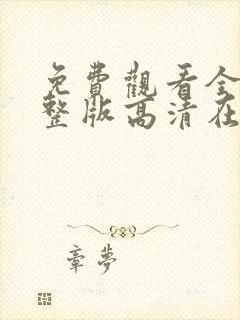 免費觀看全
整版高清在
章夢